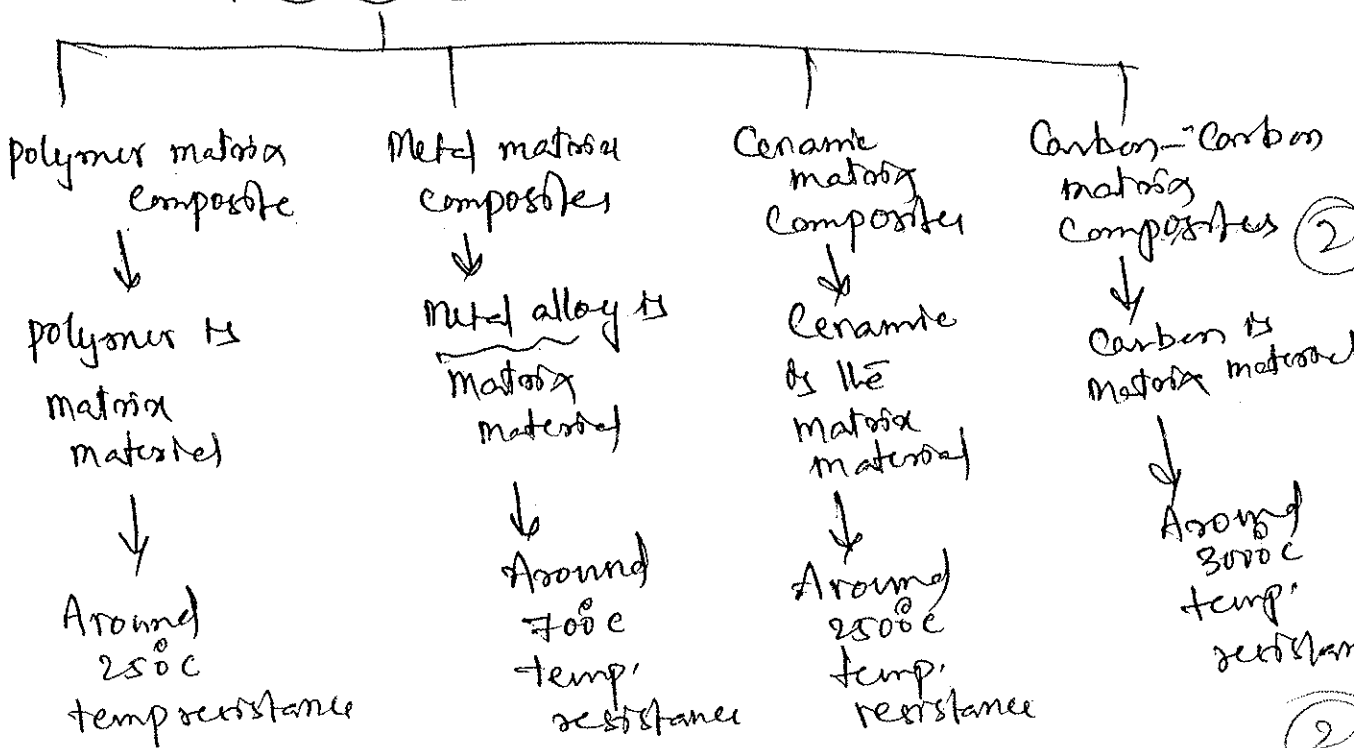 polymer matrix
composite
↓
polymer is
matrix
material
↓
Around
250°C
temp resistance
Metal matrix
composites
↓
Metal alloy is
matrix
material
↓
Around
700°C
temp.
resistance
Ceramic
matrix
Composites
↓
Ceramic
is the
matrix
material
↓
Around
2500°C
temp.
resistance
Carbon-Carbon
matrix
Composites
2
↓
Carbon is
matrix material
↓
Around
3000°C
temp.
resistan
2